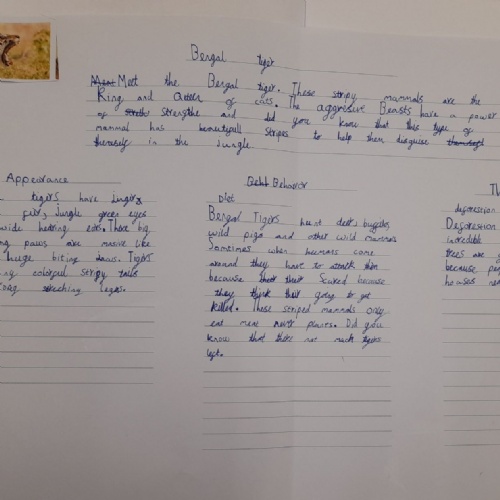 Bengal tiger
Meet the Bengal tiger. These stripy mammals are the
King and Queen of cats. The aggresive Beasts have a power
of strengthe and did you know that this type of
mammal has beautifull stripes to help them disguise
themself in the Jungle
Appearance
tigers have
fur, Jungle green eyes
wide hearing ears. There big
paws are massive like
huge biting Jaws. Tigers
colorful stripy tails
legs.
Behavior
Diet
Bengal Tigers hunt deer,
wild pigs and other wild mammals
Sometimes when humans come
around they have to attack them
because scared because
they think their going to get
killed. These striped mammals only
eat meat never plants. Did you
know that there not much tigers
left.
Th
deforestation
Deforestation
incredible
trees are
because peo
houses